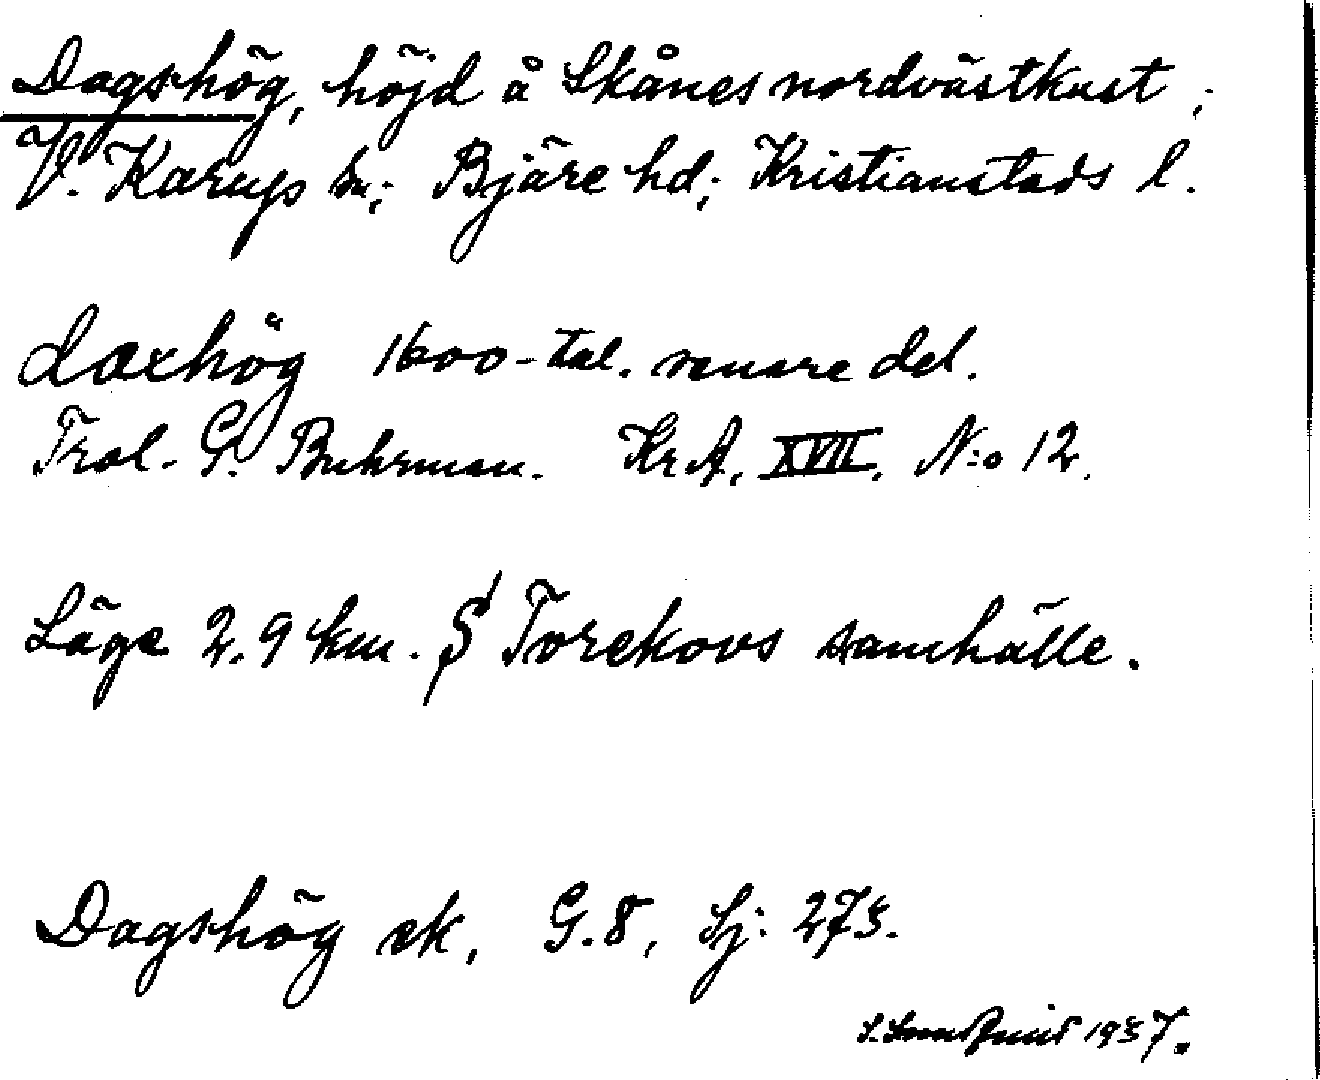 Dagshög, höjd å Skånes nordvästkust;
V. Karup sn; Bjäre hd; Kristianstads l.
daxhög 1600-tal. senare del.
Trol. G. Buhrman. KrA. XVII. N:o 12.
Läge 2.9 km. S Torekovs samhälle.
Dagshög ek, G.8, Sj: 275.
1957.